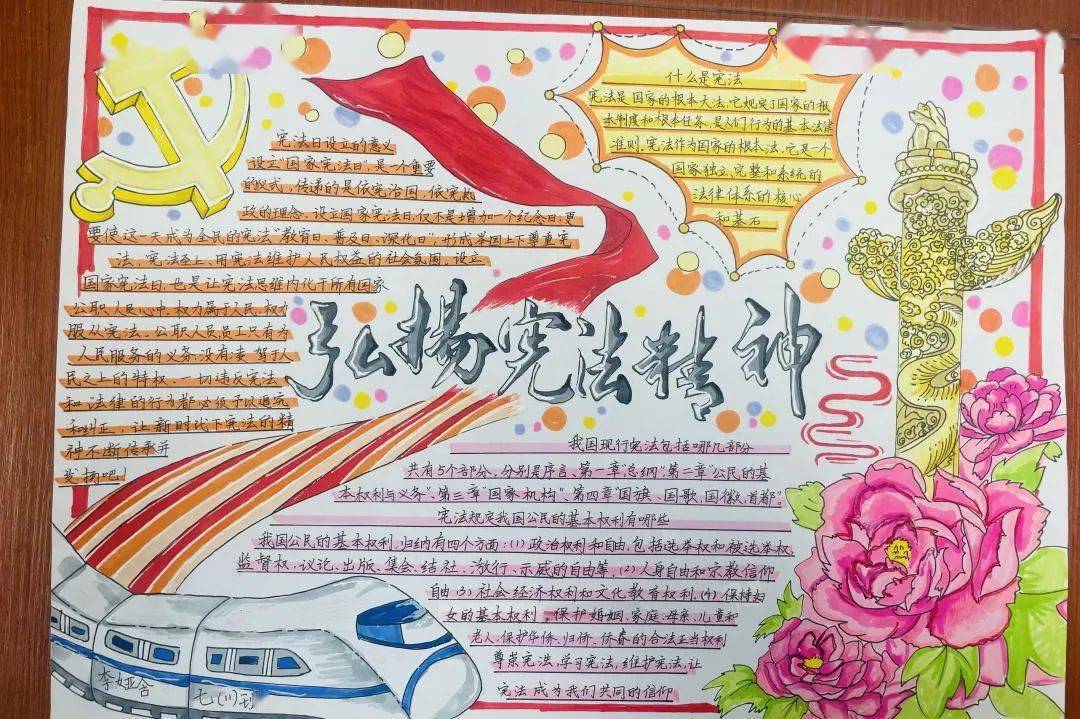 宪法日设立的意义
设立"国家宪法日",是一个重要
的仪式,传递的是依宪治国、依宪执
政的理念.设立国家宪法日,仅不是增加一个纪念日,更
要使这一天成为全民的宪法"教育日、普及日、深化日",形成举国上下尊重宪
法、宪法至上、用宪法维护人民权益的社会氛围.设立
国家宪法日,也是让宪法思维内化于所有国家
公职人员心中.权力属于人民,权力
服从宪法.公职人员只有为
人民服务的义务,没有凌驾于人
民之上的特权.一切违反宪法
和法律的行为都必须予以追究
和纠正.让新时代下宪法的精
神不断传承并
发扬吧!
什么是宪法
宪法是国家的根本大法,它规定了国家的根
本制度和根本任务,是人们行为的基本法律
准则.宪法作为国家的根本法,它是一个
国家独立、完整和系统的
法律体系的核心
和基石
弘扬宪法精神
我国现行宪法包括哪几部分
共有5个部分,分别是序言、第一章"总纲"、第二章"公民的基
本权利与义务"、第三章"国家机构"、第四章"国旗、国歌,国徽,首都"。
宪法规定我国公民的基本权利有哪些
我国公民的基本权利,归纳有四个方面:(1)政治权利和自由,包括选举权和被选举权,
监督权,议论、出版、集会、结社、游行、示威的自由等,(2)人身自由和宗教信仰
自由(3)社会经济权利和文化教育权利,(4)保持妇
女的基本权利,保护婚姻、家庭、母亲、儿童和
老人,保护华侨、归侨、侨眷的合法正当权利
尊崇宪法,学习宪法,维护宪法,让
宪法成为我们共同的信仰
七(1)班